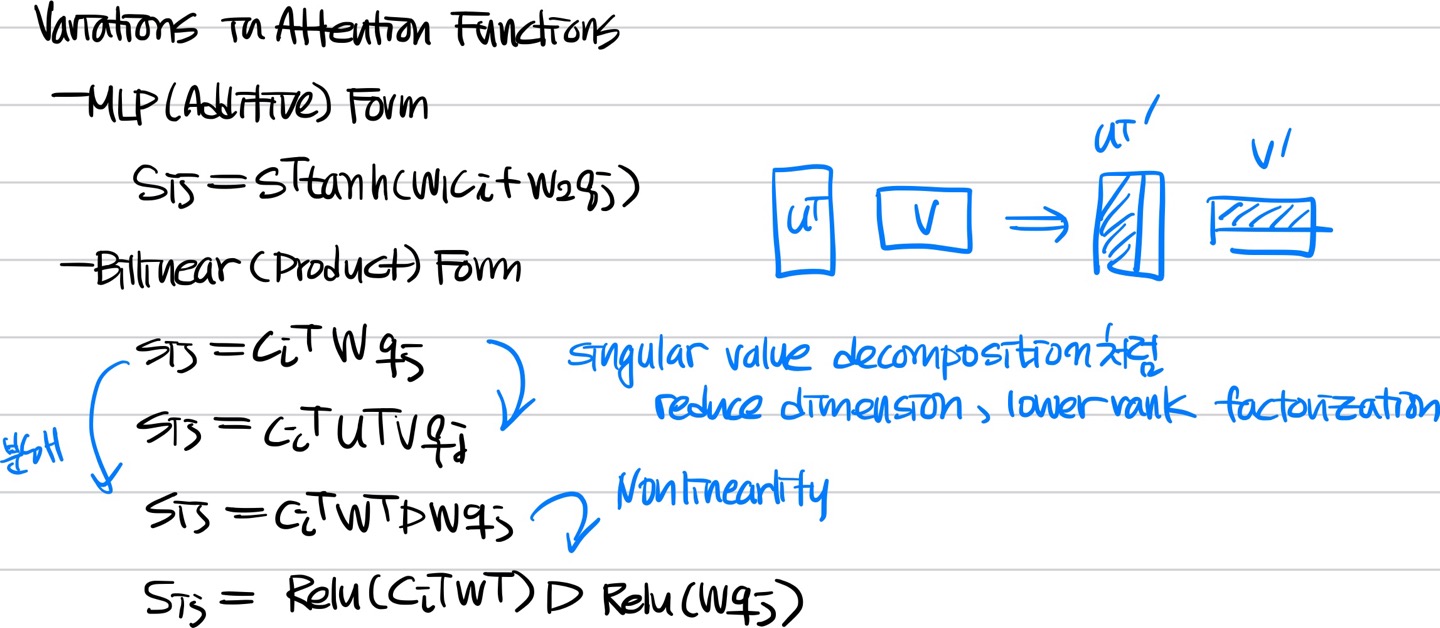 Variations in Attention Functions
-MLP(Additive) Form
Sij = sᵀtanh(W₁cᵢ+W₂qj)
-Bilinear (Product) Form
Sij = cᵢᵀWqj
Sij = cᵢᵀUᵀVqj
Sij = cᵢᵀWᵀDWqj
Sij = Relu(cᵢᵀWᵀ) D Relu(Wqj)
분해
Uᵀ V ⇒ Uᵀ′ V′
singular value decomposition처럼
reduce dimension, lower rank factorization
Nonlinearity